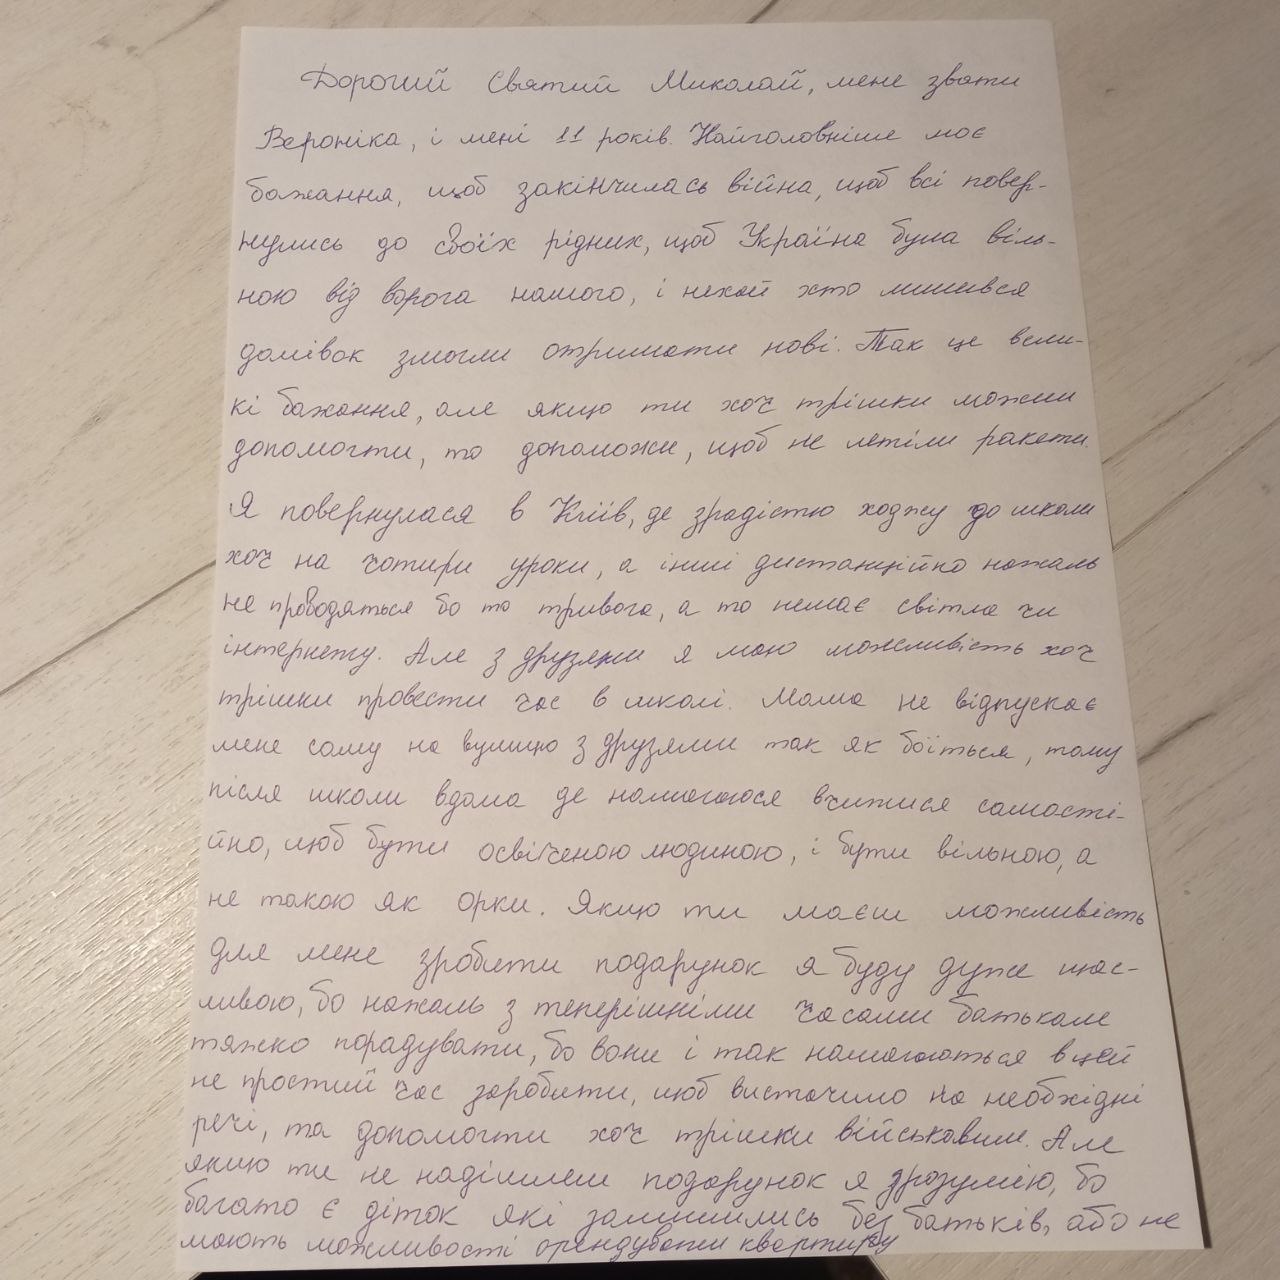 Дорогий Святий Миколай, мене звати
Вероніка, і мені 11 років. Найголовніше моє
бажання, щоб закінчилась війна, щоб всі повер-
нулись до своїх рідних, щоб Україна була віль-
ною від ворога нашого, і нехай хто лишився
домівок змогли отримати нові. Так це вели-
кі бажання, але якщо ти хоч трішки можеш
допомогти, то допоможи, щоб не летіли ракети.
Я повернулася в Київ, де зрадістю ходжу до школи
хоч на чотири уроки, а інші дистанційно нажаль
не проводяться бо то тривога, а то немає світла чи
інтернету. Але з друзями я маю можливість хоч
трішки провести час в школі. Мама не відпускає
мене саму на вулицю з друзями так як боїться, тому
після школи вдома де намагаюся вчитися самості-
йно, щоб бути освіченою людиною, і бути вільною, а
не такою як орки. Якщо ти маєш можливість
для мене зробити подарунок я буду дуже щас-
ливою, бо нажаль з теперішніми часами батькам
тяжко порадувати, бо вони і так намагаються в цей
не простий час заробити, щоб вистачило на необхідні
речі, та допомогти хоч трішки військовим. Але
якщо ти не надішлеш подарунок я зрозумію, бо
багато є діток які залишились без батьків, або не
мають можливості орендувати квартиру